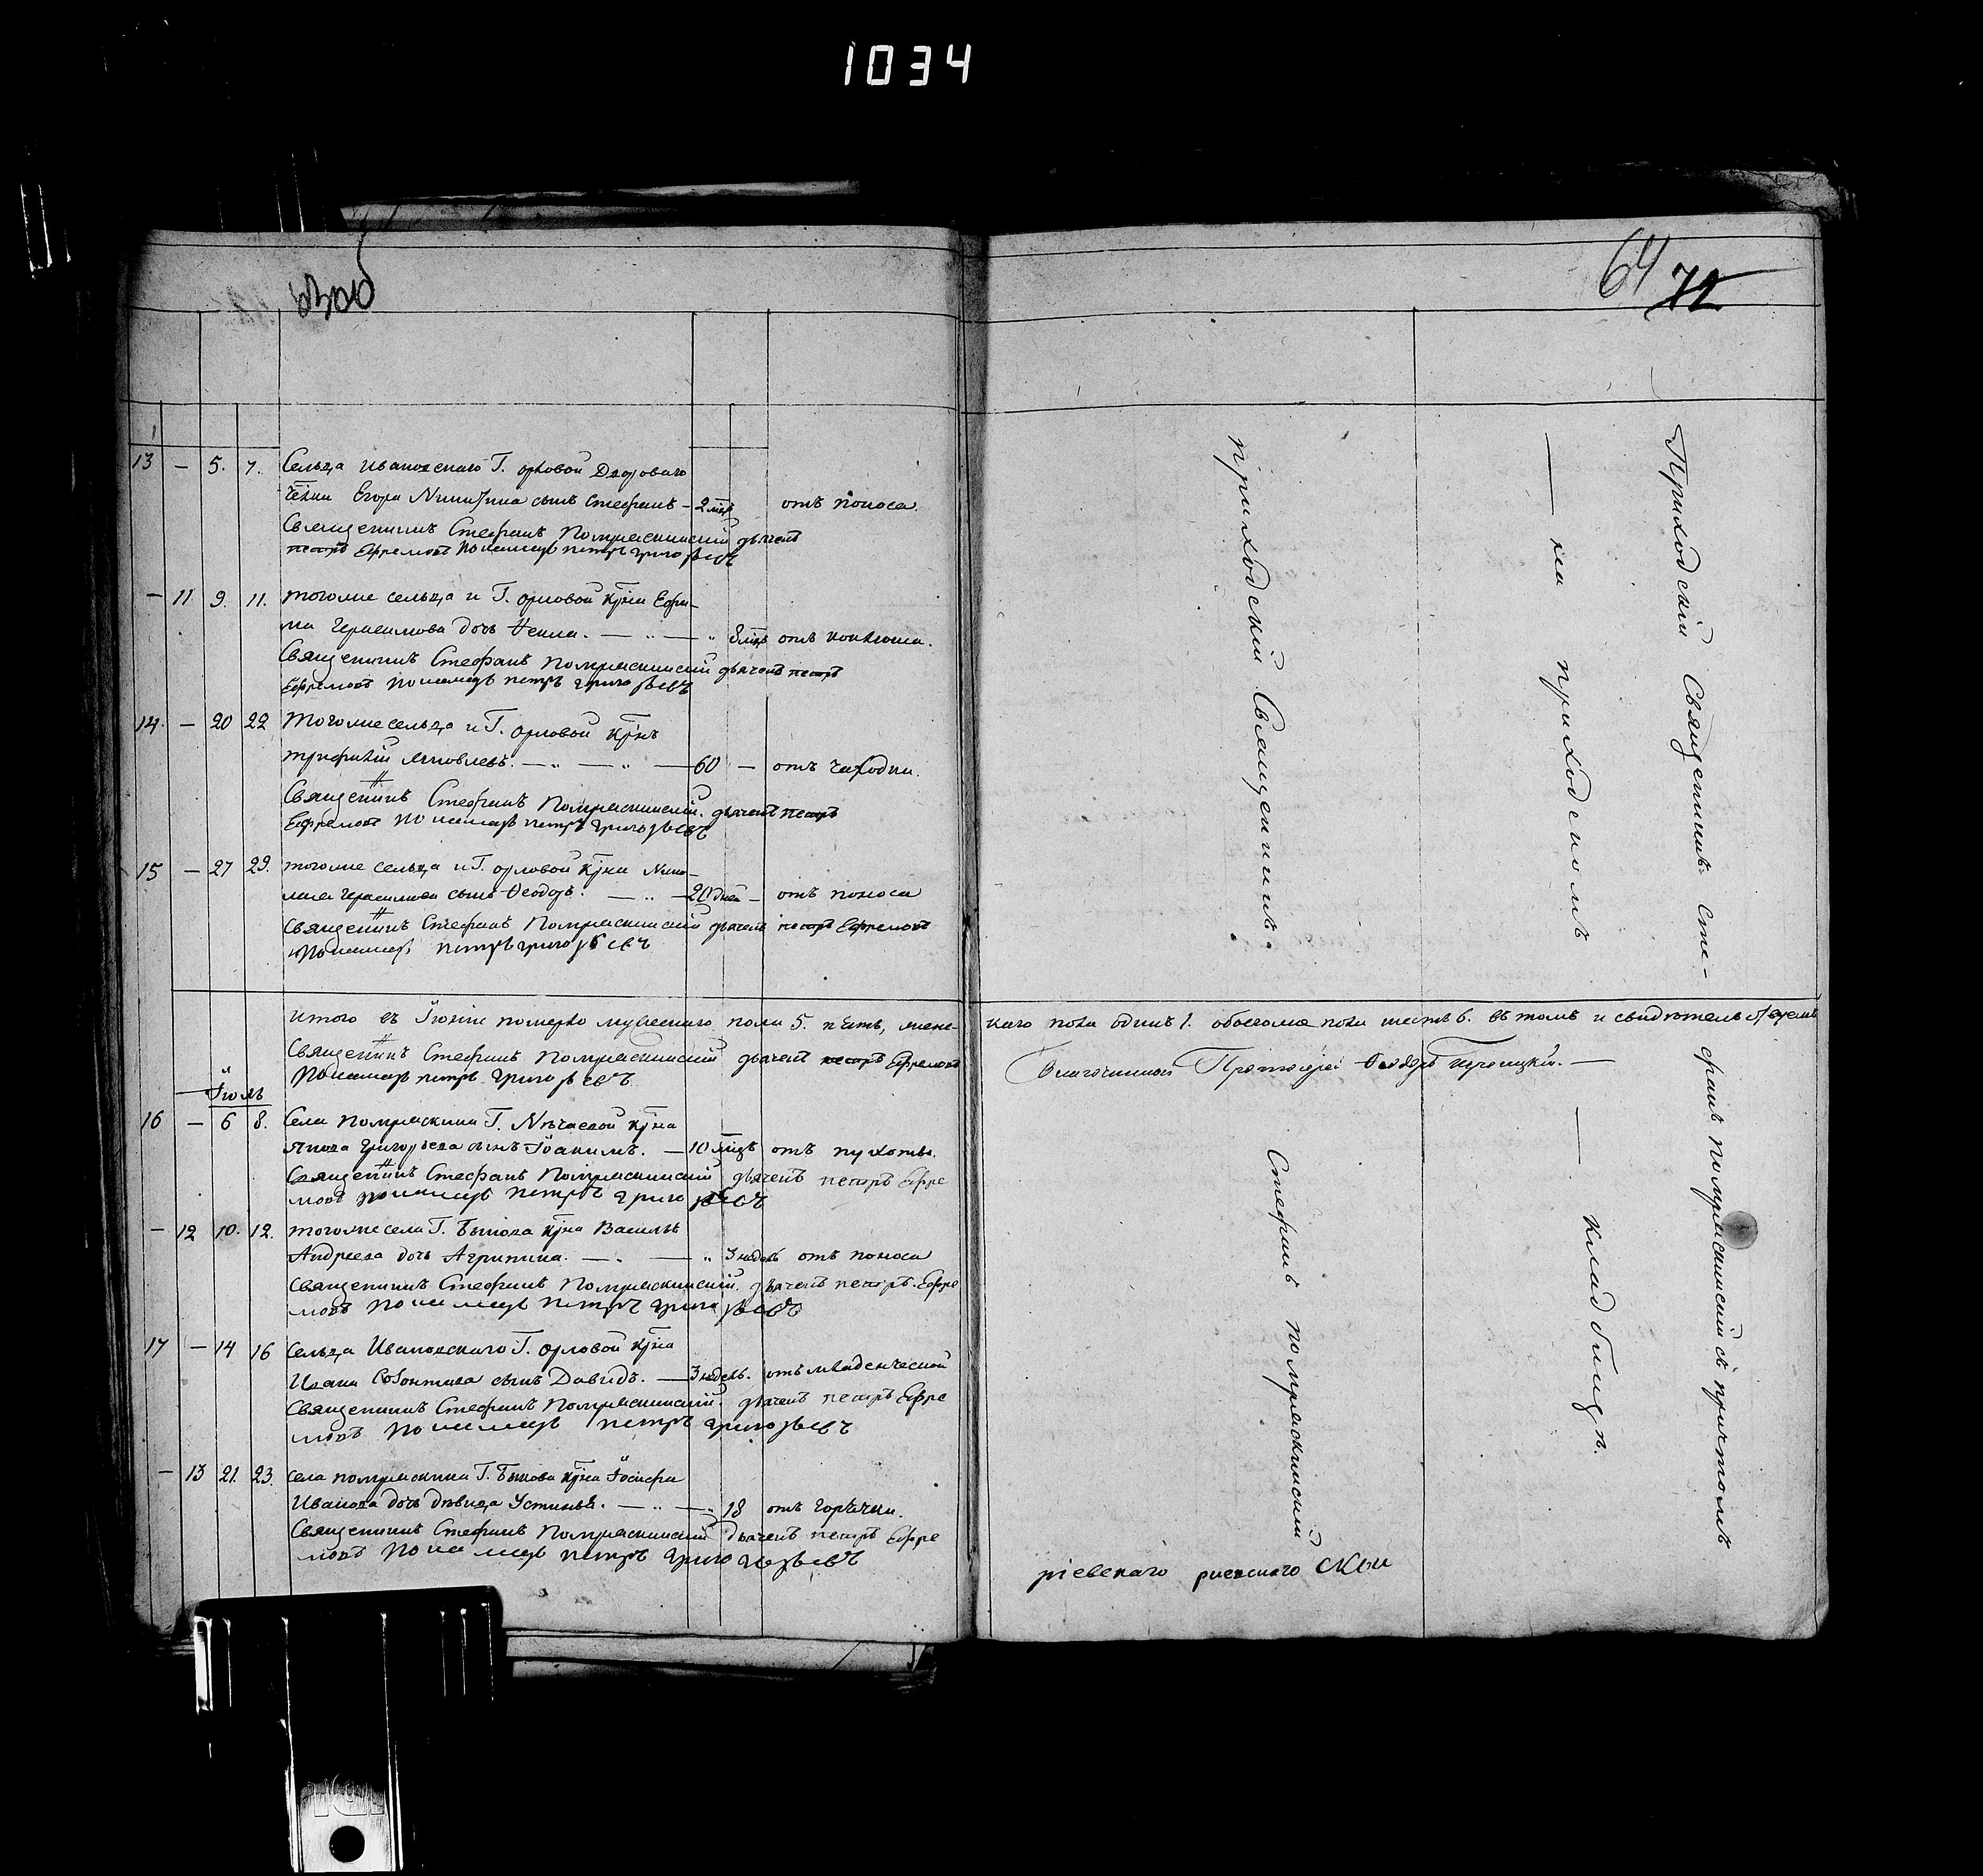 1034
63 об
64 72
13 — 5. 7. Сельца Ивановскаго Г. Орловой Дворового
Егора Никитина сынъ Стефанъ — 2 мцъ отъ поноса.
Священникъ Стефанъ Помряскинскій дьячекъ
петръ Ефремовъ Пономарь петръ григорьевъ
— 11 9. 11. тогоже сельца и Г. Орловой кр̃на Ефи-
ма Герасимова дочь Ѳекла. — „ — „ 8 мцъ отъ коклюша.
Священникъ Стефанъ Помряскинскій дьячекъ петръ
Ефремовъ пономарь петръ григорьевъ
14. — 20 22 Тогоже сельца и Г. Орловой кр̃нъ
Трифилій Яковлевъ. — „ — „ — 60 — отъ чаходки.
Священникъ Стефанъ Помряскинскій. дьячекъ петръ
Ефремовъ пономарь петръ григорьевъ
15 — 27 29. тогоже сельца и Г. Орловой кр̃на Нико-
лая Герасимова сынъ Ѳеодоръ. — „ — 20 дней — отъ поноса
Священникъ Стефанъ Помряскинскій дьячекъ петръ Ефремовъ
Пономарь петръ григорьевъ
Итого въ Іюніи померло мужескаго пола 5. пять, женс-
каго пола одинъ 1. обоегоже пола шесть 6. въ томъ и свидѣтельствуемъ
Священникъ Стефанъ Помряскинскій дьячекъ петръ Ефремовъ
Пономарь петръ григорьевъ
Благочинный Протоіерей Ѳеодоръ
Іюль
16 — 6 8. Села Помряскина Г. Нечаевой кр̃на
Якова Григорьева сынъ Іоакимъ. — 10 мцъ отъ
Священникъ Стефанъ Помряскинскій дьячекъ петръ Ефре
мовъ пономарь петръ григорьевъ
— 12 10. 12. тогоже села Г. Быкова кр̃на Василья
Андреева дочь Агрипина. — „ — „ 3 недѣль отъ поноса
Священникъ Стефанъ Помряскинскій. дьячекъ петръ. Ефре
мовъ пономарь петръ григорьевъ
17 — 14 16 Сельца Ивановскаго Г. Орловой кр̃на
Ивана сынъ Давидъ. — 3 недѣль. отъ младенческой
Священникъ Стефанъ Помряскинскій. дьячекъ петръ Ефре
мовъ пономарь петръ григорьевъ
— 13 21. 23. села Помряскина Г. Быкова кр̃на Іосифа
Иванова дочь дѣвица Устинья. — „ — „ 18 отъ горячки.
Священникъ Стефанъ Помряскинскій дьячекъ петръ Ефре
мовъ пономарь петръ григорьевъ
приходскій Священникъ.
Стефанъ Помряскинскій
— на приходскомъ
— кладбищѣ.
Приходскій Священникъ Сте-
фанъ Помряскинскій съ причтомъ